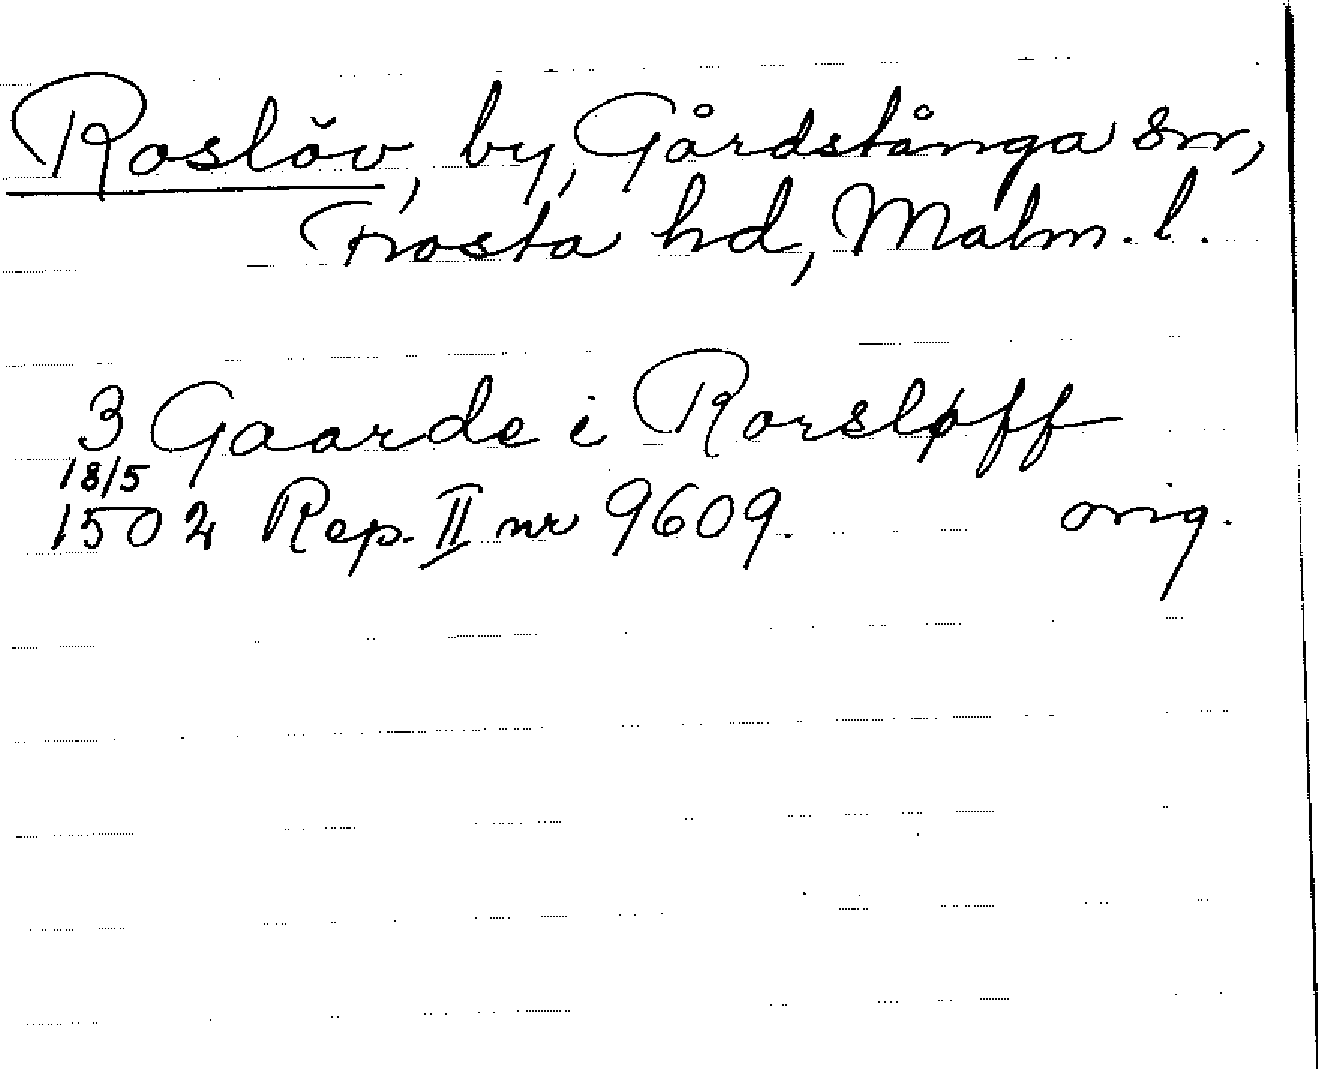 Roslöv, by, Gårdstånga sn,
Frosta hd, Malm. l.
3 Gaarde i Rorsløff
18/5
1502 Rep. II nr 9609. orig.